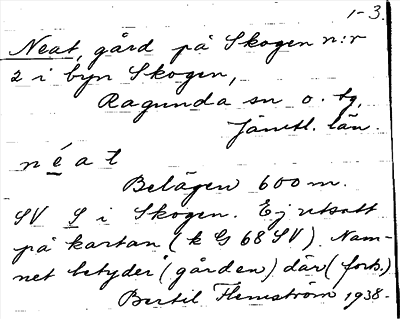 1-3.
Neat, gård på Skogen n:r
2 i byn Skogen,
Ragunda sn o. tg.
Jämtl. län.
n é a t
Belägen 600 m.
SV S i Skogen. Ej utsatt
på kartan (k G 68 SV). Nam-
net betyder (gården) där (forts.)
Bertil Flemström 1938.